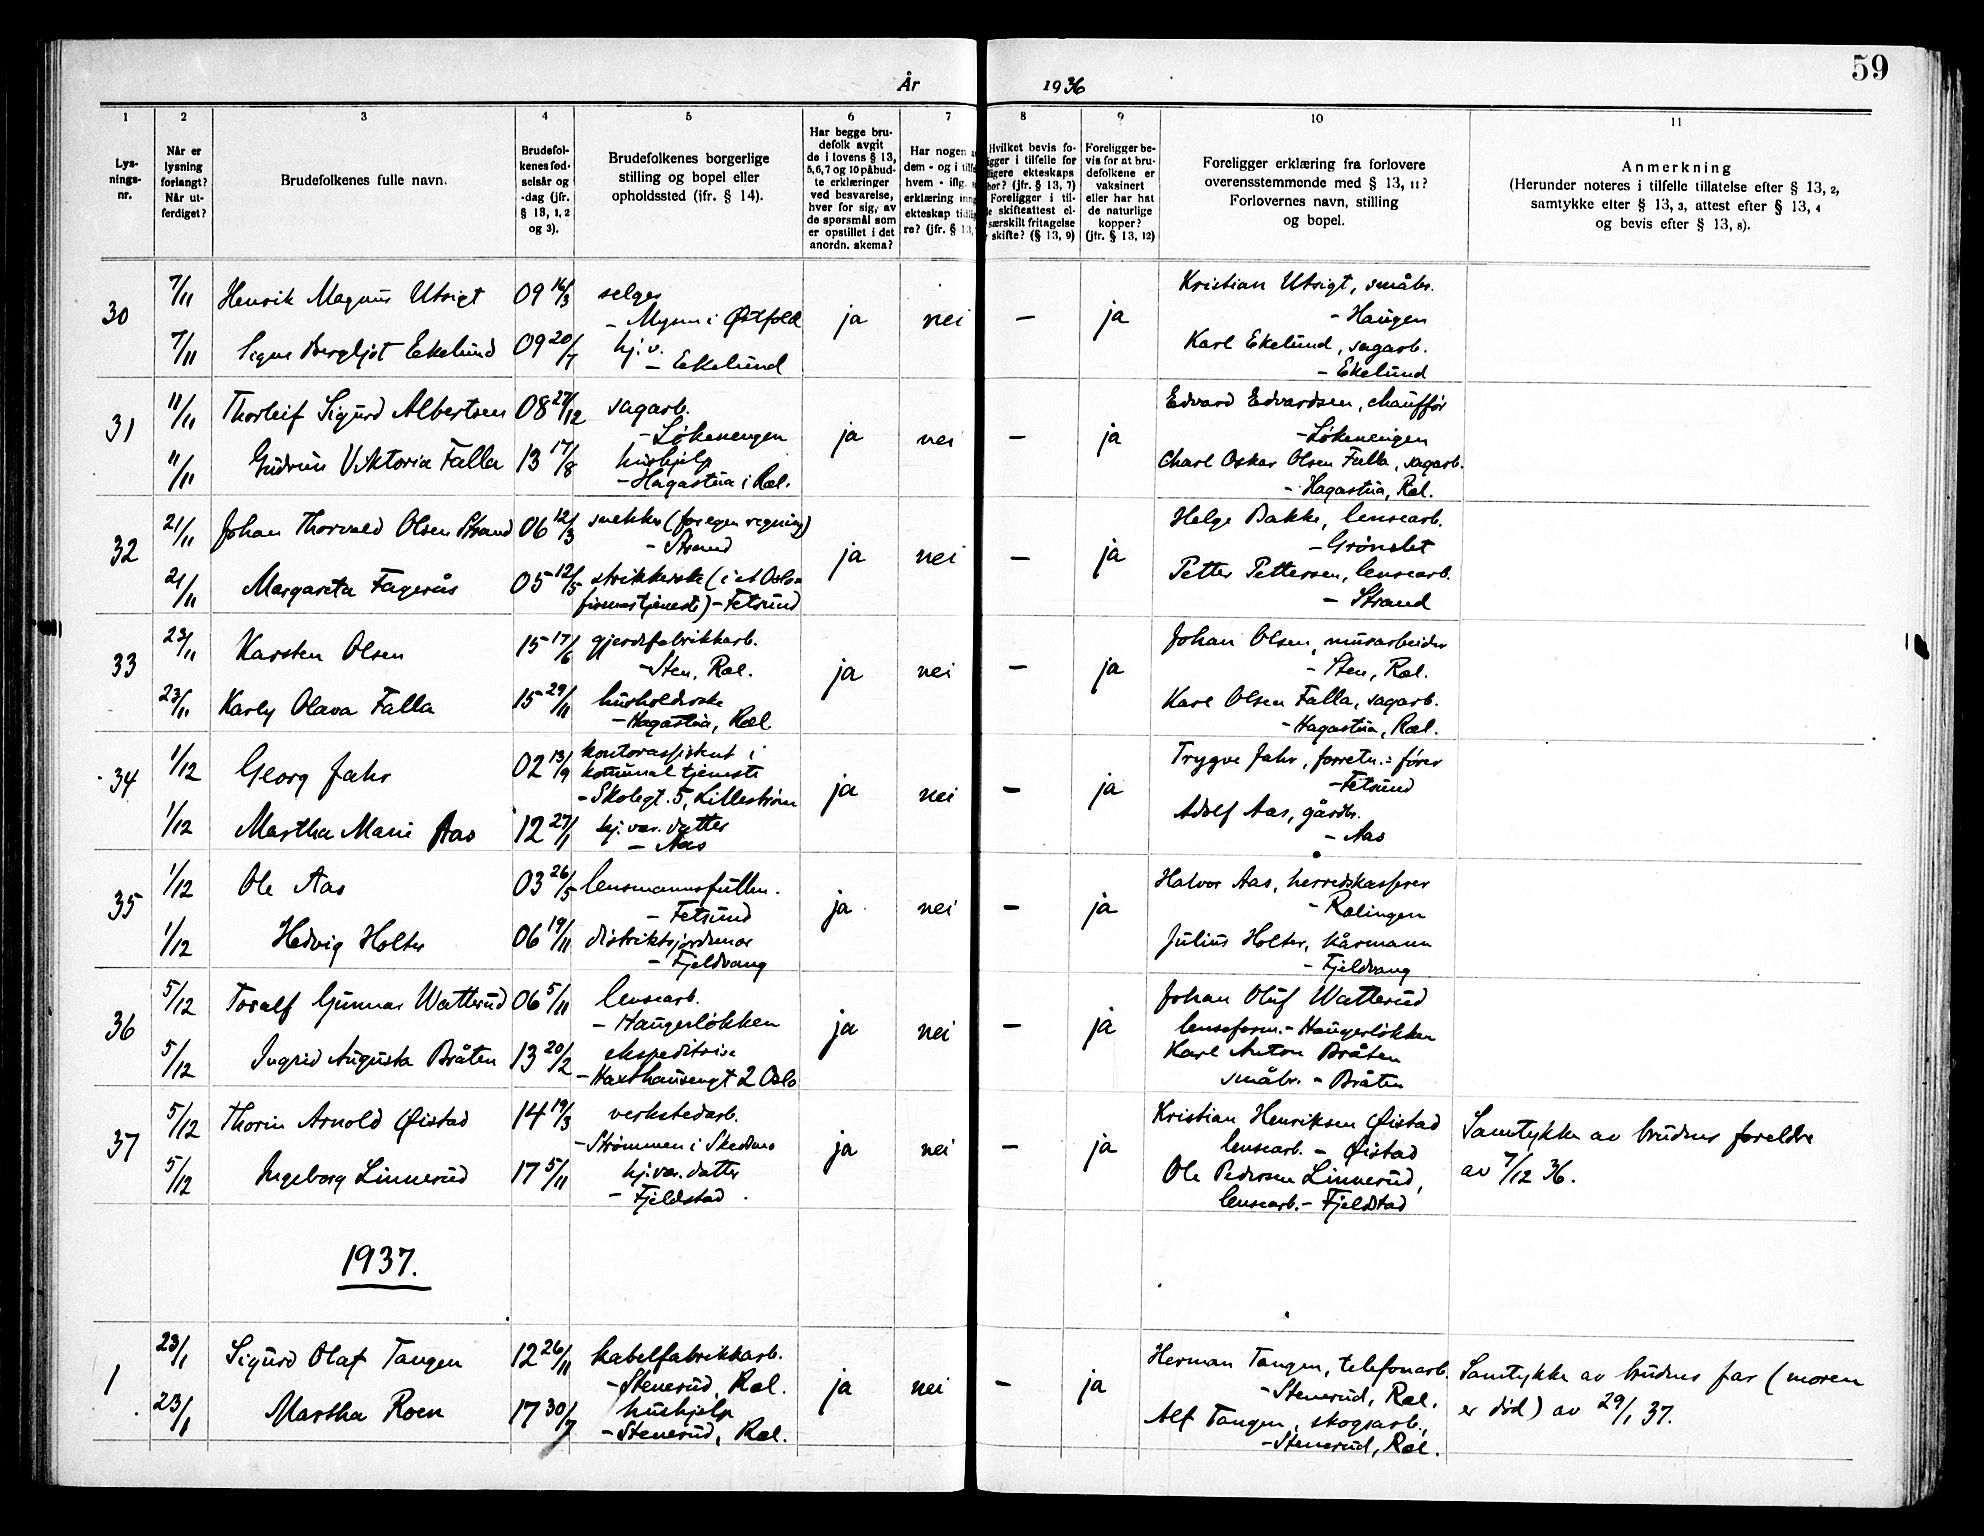 59
År 1936
1 2 3 4 5 6 7 8 9 10 11
Lys-
nings-
nr.
Når er
lysning
forlangt?
Når ut-
ferdiget?
Brudefolkenes fulle navn.
Brudefol-
kenes fød-
selsår og
-dag (jfr.
§ 13, 1, 2
og 3).
Brudefolkenes borgerlige
stilling og bopel eller
opholdssted (jfr. § 14).
Har begge bru-
defolk avgit
de i lovens § 13,
5,6,7 og 10 påbud-
te erklæringer
ved besvarelse,
hver for sig, av
de spørsmål som
er opstillet i det
anordn. skema?
Har nogen
dem - og i
hvem - iflg.
erklæring
ekteskap
re? (jfr. § 13,
Hvilket bevis fo-
ligger i tilfelle for
ligere ekteskaps
hør? (jfr. § 13, 7)
Foreligger i til-
le skifteattest el-
særskilt fritagelse
skifte? (§ 13, 9)
Foreligger be-
vis for at bru-
defolkene er
vaksinert
eller har hat
de naturlige
kopper?
(jfr. § 13, 12)
Foreligger erklæring fra forlovere
overensstemmende med § 13, 11?
Forlovernes navn, stilling
og bopel.
Anmerkning
(Herunder noteres i tilfelle tillatelse efter § 13, 2,
samtykke efter § 13, 3, attest efter § 13, 4
og bevis efter § 13, 8).
30 7/11 Henrik Magnus Utsigt 09 16/3 selger
- Mysen i Østfold ja nei — ja Kristian Utsigt, småbr.
- Haugen
7/11 Signe Bergljot Eekelund 09 20/7 hj.v.
- Eekelund Karl Ekelund, sagarb.
- Ekelund
31 11/11 Thorleif Sigurd Albertsen 08 27/12 sagarb.
- Løkenengen ja nei — ja Edvard Edvardsen, chauffør
- Løkenengen
11/11 Gudrun Viktoria Falla 13 17/8 hushjelp
- Hagastua i Ræl. Charl Oskar Olsen Falla, sagarb.
- Hagastua, Ræl.
32 21/11 Johan Thorvald Olsen Strand 06 12/3 snekker (for egen regning)
- Strand ja nei — ja Helge Bakke, lensearb.
- Grønslet
21/11 Margareta Fagerås 05 12/5 strikkerske (i et Oslo-
firmas tjeneste) - Fetsund Petter Pettersen, lensearb.
- Strand
33 23/11 Karsten Olsen 15 17/6 gjerdefabrikkarb.
- Sten, Ræl. ja nei — ja Johan Olsen, murarbeider
- Sten, Ræl.
23/11 Karly Olava Falla 15 29/11 husholderske
- Hagastua, Ræl. Karl Olsen Falla, sagarb.
- Hagastua, Ræl.
34 1/12 Georg Jahr 02 13/9 kontorassistent i
kommunal tjeneste
- Skolegt. 5, Lillestrøm ja nei — ja Trygve Jahr, forretn.: fører
- Fetsund
1/12 Martha Marie Aas 12 27/1 hj.vær. datter
- Aas Adolf Aas, gårdbr.
- Aas
35 1/12 Ole Aas 03 26/5 lensmannsfullm.
- Fetsund ja nei — ja Halvor Aas, herredskasserer
- Rælingen
1/12 Hedvig Holter 06 19/11 distriktsjordmor
- Fjeldvang Julius Holter, kårmann
- Fjeldvang
36 5/12 Toralf Gunnar Watterud 06 5/11 lensearb.
- Haugerløkken ja nei — ja Johan Oluf Watterud
lenseform. - Haugerløkken
5/12 Ingrid Augusta Bråten 13 20/2 ekspeditrise
- Haxthausensgt 2 Oslo Karl Anton Bråten
småbr. - Bråten
37 5/12 Thorin Arnold Øistad 14 19/3 verkstedarb.
- Strømmen i Skedsmo ja nei — ja Kristian Henriksen Øistad
lensearb. - Øistad Samtykke av brudens foreldre
av 7/12 36.
5/12 Ingeborg Linnerud 17 5/11 hj.vær. datter
- Fjeldstad. Ole Pedersen Linnerud,
lensearb. - Fjeldstad
1937.
1 23/1 Sigurd Olaf Tangen 12 26/11 kabelfabrikkarb.
- Stenerud, Ræl. ja nei — ja Herman Tangen, telefonarb.
- Stenerud, Ræl. Samtykke av brudens far (moren
er død) av 29/1 37.
23/1 Martha Roen 17 30/7 hushjelp
- Stenerud, Ræl. Alf Tangen, skogsarb.,
- Stenerud, Ræl.